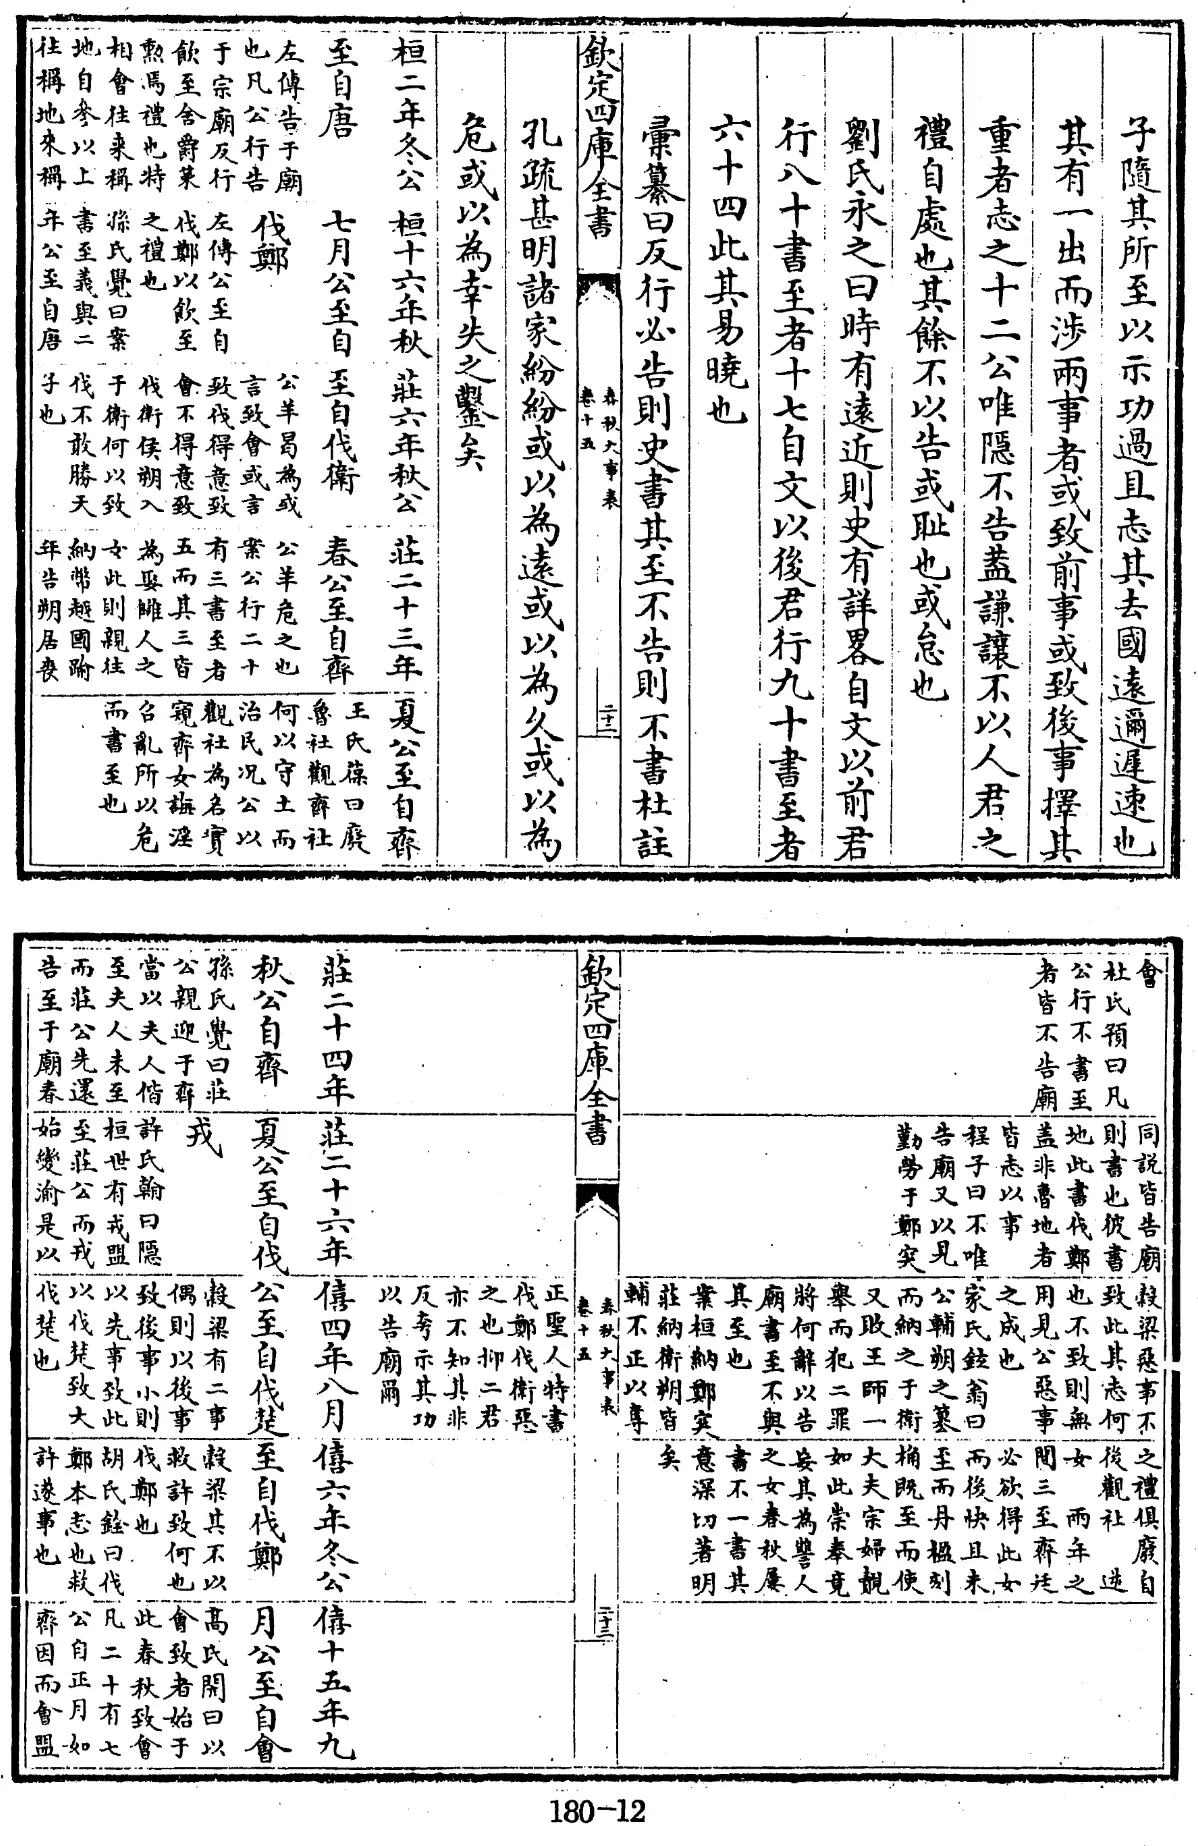 子隨其所至以示功過且志其去國遠邇遲速也
其有一出而涉兩事者或致前事或致後事擇其
重者志之十二公唯隱不告蓋謙讓不以人君之
禮自處也其餘不以告或耻也或怠也
劉氏永之曰時有遠近則史有詳畧自文以前君
行八十書至者十七自文以後君行九十書至者
六十四此其易曉也
彚纂曰反行必告則史書其至不告則不書杜註
欽定四庫全書
春秋大事表
卷十五
二十二
孔疏甚明諸家紛紛或以為遠或以為久或以為
危或以為幸失之鑿矣
桓二年冬公
至自唐
左傳告于廟
也凡公行告
于宗廟反行
飲至舍爵策
勲焉禮也特
相會往来稱
地自參以上
往稱地來稱
桓十六年秋
七月公至自
伐鄭
左傳公至自
伐鄭以飲至
之禮也
孫氏覺曰案
書至義與二
年公至自唐
莊六年秋公
至自伐衛
公羊曷為或
言致會或言
致伐得意致
會不得意致
伐衛侯朔入
于衛何以致
伐不敢勝天
子也
莊二十三年
春公至自齊
公羊危之也
案公行二十
有三書至者
五而其三皆
為娶讎人之
女此則親往
納幣越國踰
年告朔居喪
夏公至自齊
王氏葆曰廢
魯社觀齊社
何以守土而
治民况公以
觀社為名實
窺齊女誨淫
召亂所以危
而書至也
會
杜氏預曰凡
公行不書至
者皆不告廟
同説皆告廟
則書也彼書
地此書伐鄭
蓋非魯地者
皆志以事
程子曰不唯
告廟又以見
勤勞于鄭突
榖梁惡事不
致此其志何
也不致則無
用見公惡事
之成也
家氏鉉翁曰
公輔朔之篡
而納之于衛
又敗王師一
舉而犯二罪
將何辭以告
廟書至不與
其至也
案桓納鄭突
莊納衛朔皆
輔不正以奪
之禮俱廢自
後觀社 逆
女 兩年之
間三至齊廷
必欲得此女
而後快且未
至而丹楹刻
桷既至而使
大夫宗婦覿
如此崇奉竟
妄其為讐人
之女春秋屢
書不一書其
意深切著明
矣
欽定四庫全書
春秋大事表
卷十五
二十三
正聖人特書
伐鄭伐衛惡
之也抑二君
亦不知其非
反夸示其功
以告廟爾
莊二十四年
秋公自齊
孫氏覺曰莊
公親迎于齊
當以夫人偕
至夫人未至
而莊公先還
告至于廟春
莊二十六年
夏公至自伐
戎
許氏翰曰隱
桓世有戎盟
至莊公而戎
始變渝是以
僖四年八月
公至自伐楚
榖梁有二事
偶則以後事
致後事小則
以先事致此
以伐楚致大
伐楚也
僖六年冬公
至自伐鄭
榖梁其不以
救許致何也
伐鄭也
胡氏銓曰伐
鄭本志也救
許遂事也
僖十五年九
月公至自會
髙氏閌曰以
會致者始于
此春秋致會
凡二十有七
公自正月如
齊因而會盟
180-12